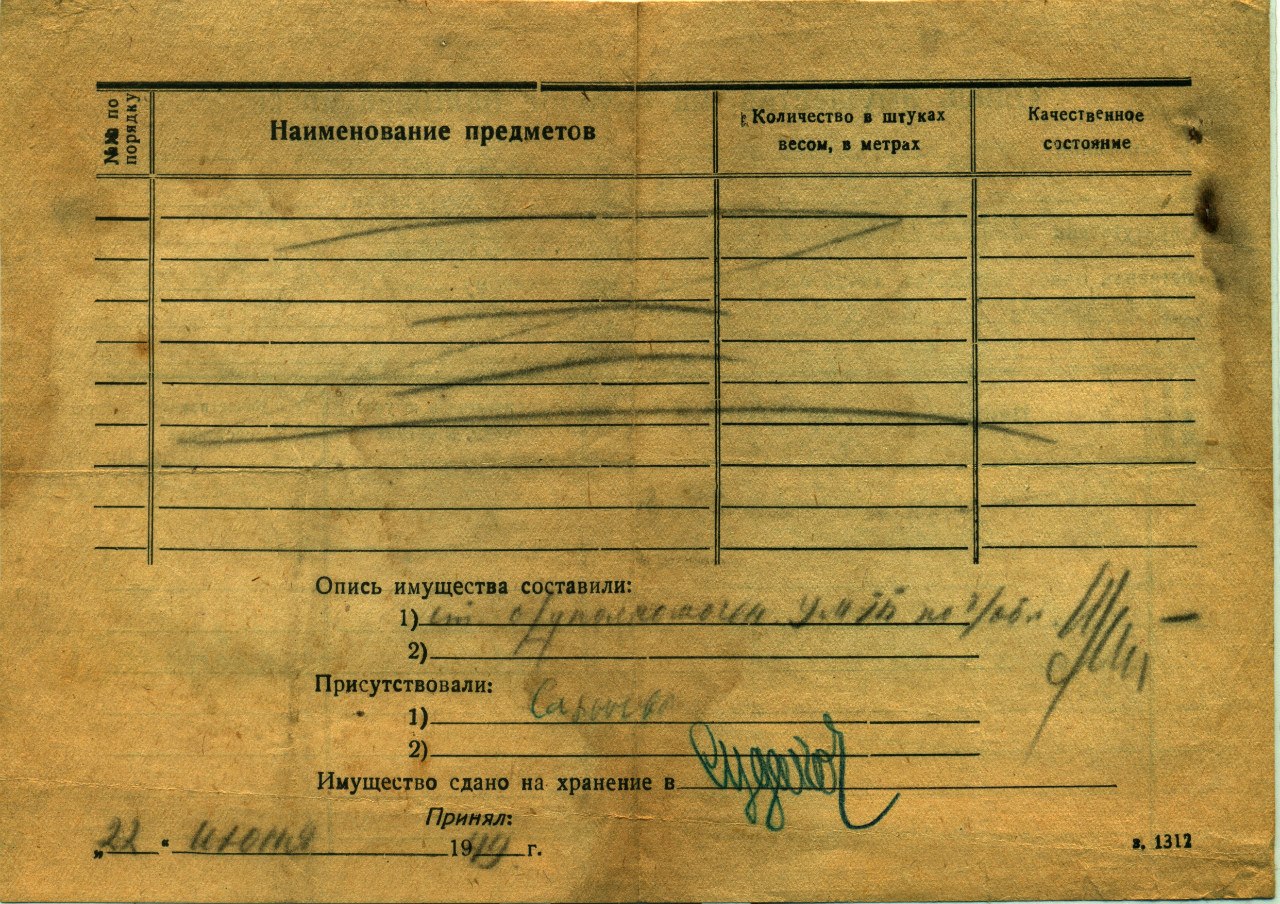 №№ по порядку
Наименование предметов
Количество в штуках весом, в метрах
Качественное состояние
Опись имущества составили:
1) ст
2)
Присутствовали:
1)
2)
Имущество сдано на хранение в
Принял:
„22 “ июня 1949 г.
в. 1312